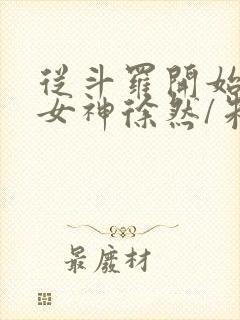 從斗羅開始
女神徐然/
最廢材